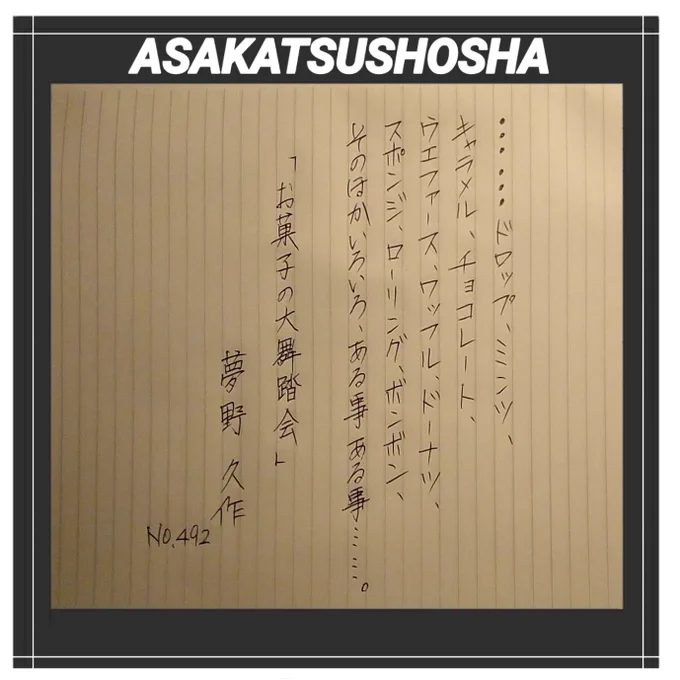 ASAKATSUSHOSHA
・・・・・・ドロップ、ミンツ、
キャラメル、チョコレート、
ウエファース、ワッフル、ドーナツ、
スポンジ、ローリング、ボンボン、
そのほかいろいろ、ある事ある事……。
「お菓子の大舞踏会」
夢野 久作
No.492